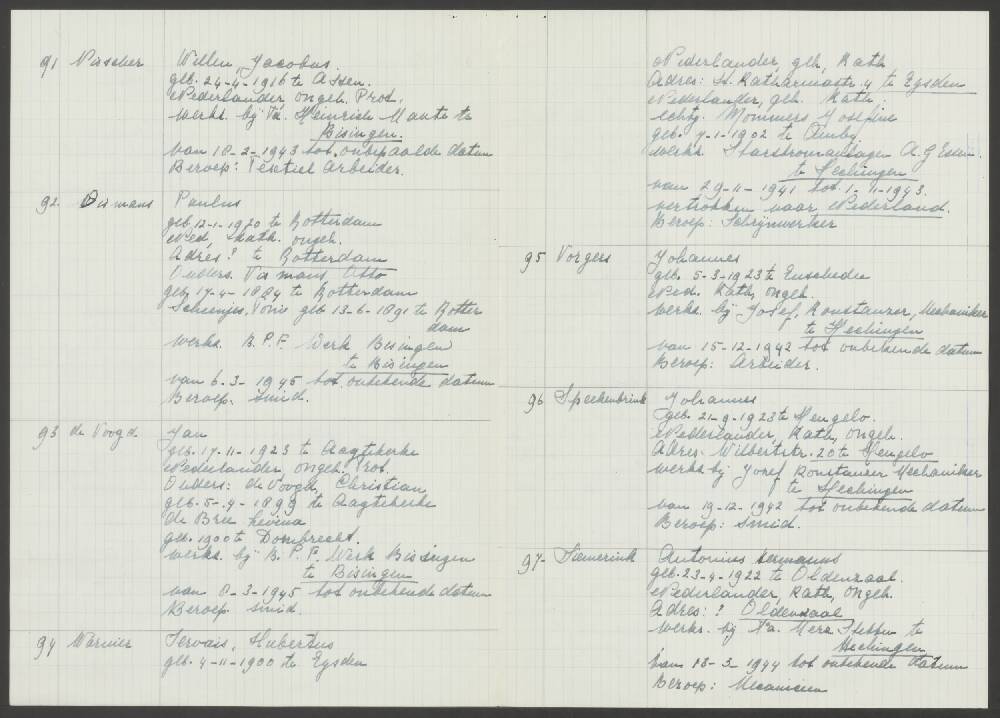 91 Visscher Willem, Jacobus.
geb. 24-4-1916 te Assen.
Nederlander, ongeh. Prot.
werkt. bij Fa. Heinrich Maute te
Bisingen.
van 18-2-1943 tot onbepaalde datum
Beroep: Textiel Arbeider.
92 Vismans Paulus
geb. 12-1-1920 te Rotterdam
Ned, kath. ongeh.
Adres? te Rotterdam
Ouders. Vismans, Otto
geb. 17-4-1884 te Rotterdam
geb 13-6-1891 te Rotter
dam
werkz. B.P.F. Werk Bisingen
te Bisingen
van 6-3-1945 tot onbekende datum
Beroep: Smid.
93 de Voogd. Jan
geb. 17-11-1923 te Aagtekerke
Nederlander, ongeh. Prot.
Ouders: de Voogd, Christian
geb. 5-4-1899 te Aagtekerke
de Bree Levina
geb. 1900 te Domburecht.
werkz. bij B.P.F. Werk Bissingen
te Bisingen
van 8-3-1945 tot onbekende datum
Beroep smid.
94 Warnier Servais, Hubertus
geb. 4-11-1900 te Eysden
Nederlander, geh, Kath
Adres: St. Katharinastr. 4 te Eysden
Nederlander, geh. Kath.
echtg. Mommers Josefine
geb. 7-1-1902 te Amby.
werkz. Starstromanlagen A.G Essen.
te Hechingen
van 29-11-1941 tot 1-11-1943.
vertrokken naar Nederland.
Beroep: Schrijnwerker
95 Vorgers Johannes
geb. 5-3-1923 te Enschedee
Ned. Kath, ongeh.
werkz. bij Josef, Konstanzer, Mechaniker
te Hechingen
van 15-12-1942 tot onbekende datum
Beroep: Arbeider.
96 Speckenbrink Johannes
geb. 21-9-1923 te Hengelo.
Nederlander, Kath, ongeh.
Adres. Wilbertstr. 20 te Hengelo
werkz bij Josef Konstanzer Mechaniker
te Hechingen
van 19-12-1942 tot onbekende datum
Beroep: Smid.
97- Siemerink Antonius Hermanus
geb. 23-4-1922 te Oldenzaal.
Nederlander, Kath, ongeh.
Adres: ? Oldenzaal
werkz. bij Fa. Merz te
Hechingen
van 13-3-1944 tot onbekende datum
Beroep: Mecanicien